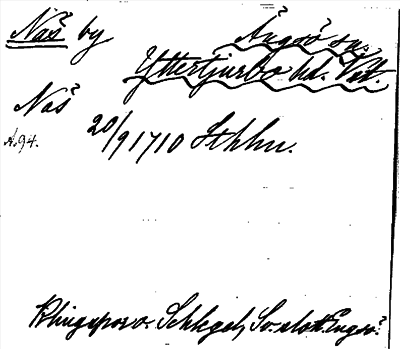 Näs by Ängsö sn.
Yttertjurbo hd. Vstl.
Näs 20/9 1710 Sthlm.
A.94.
Klingspor o. Schlegel, Sv. slott. Engsö.